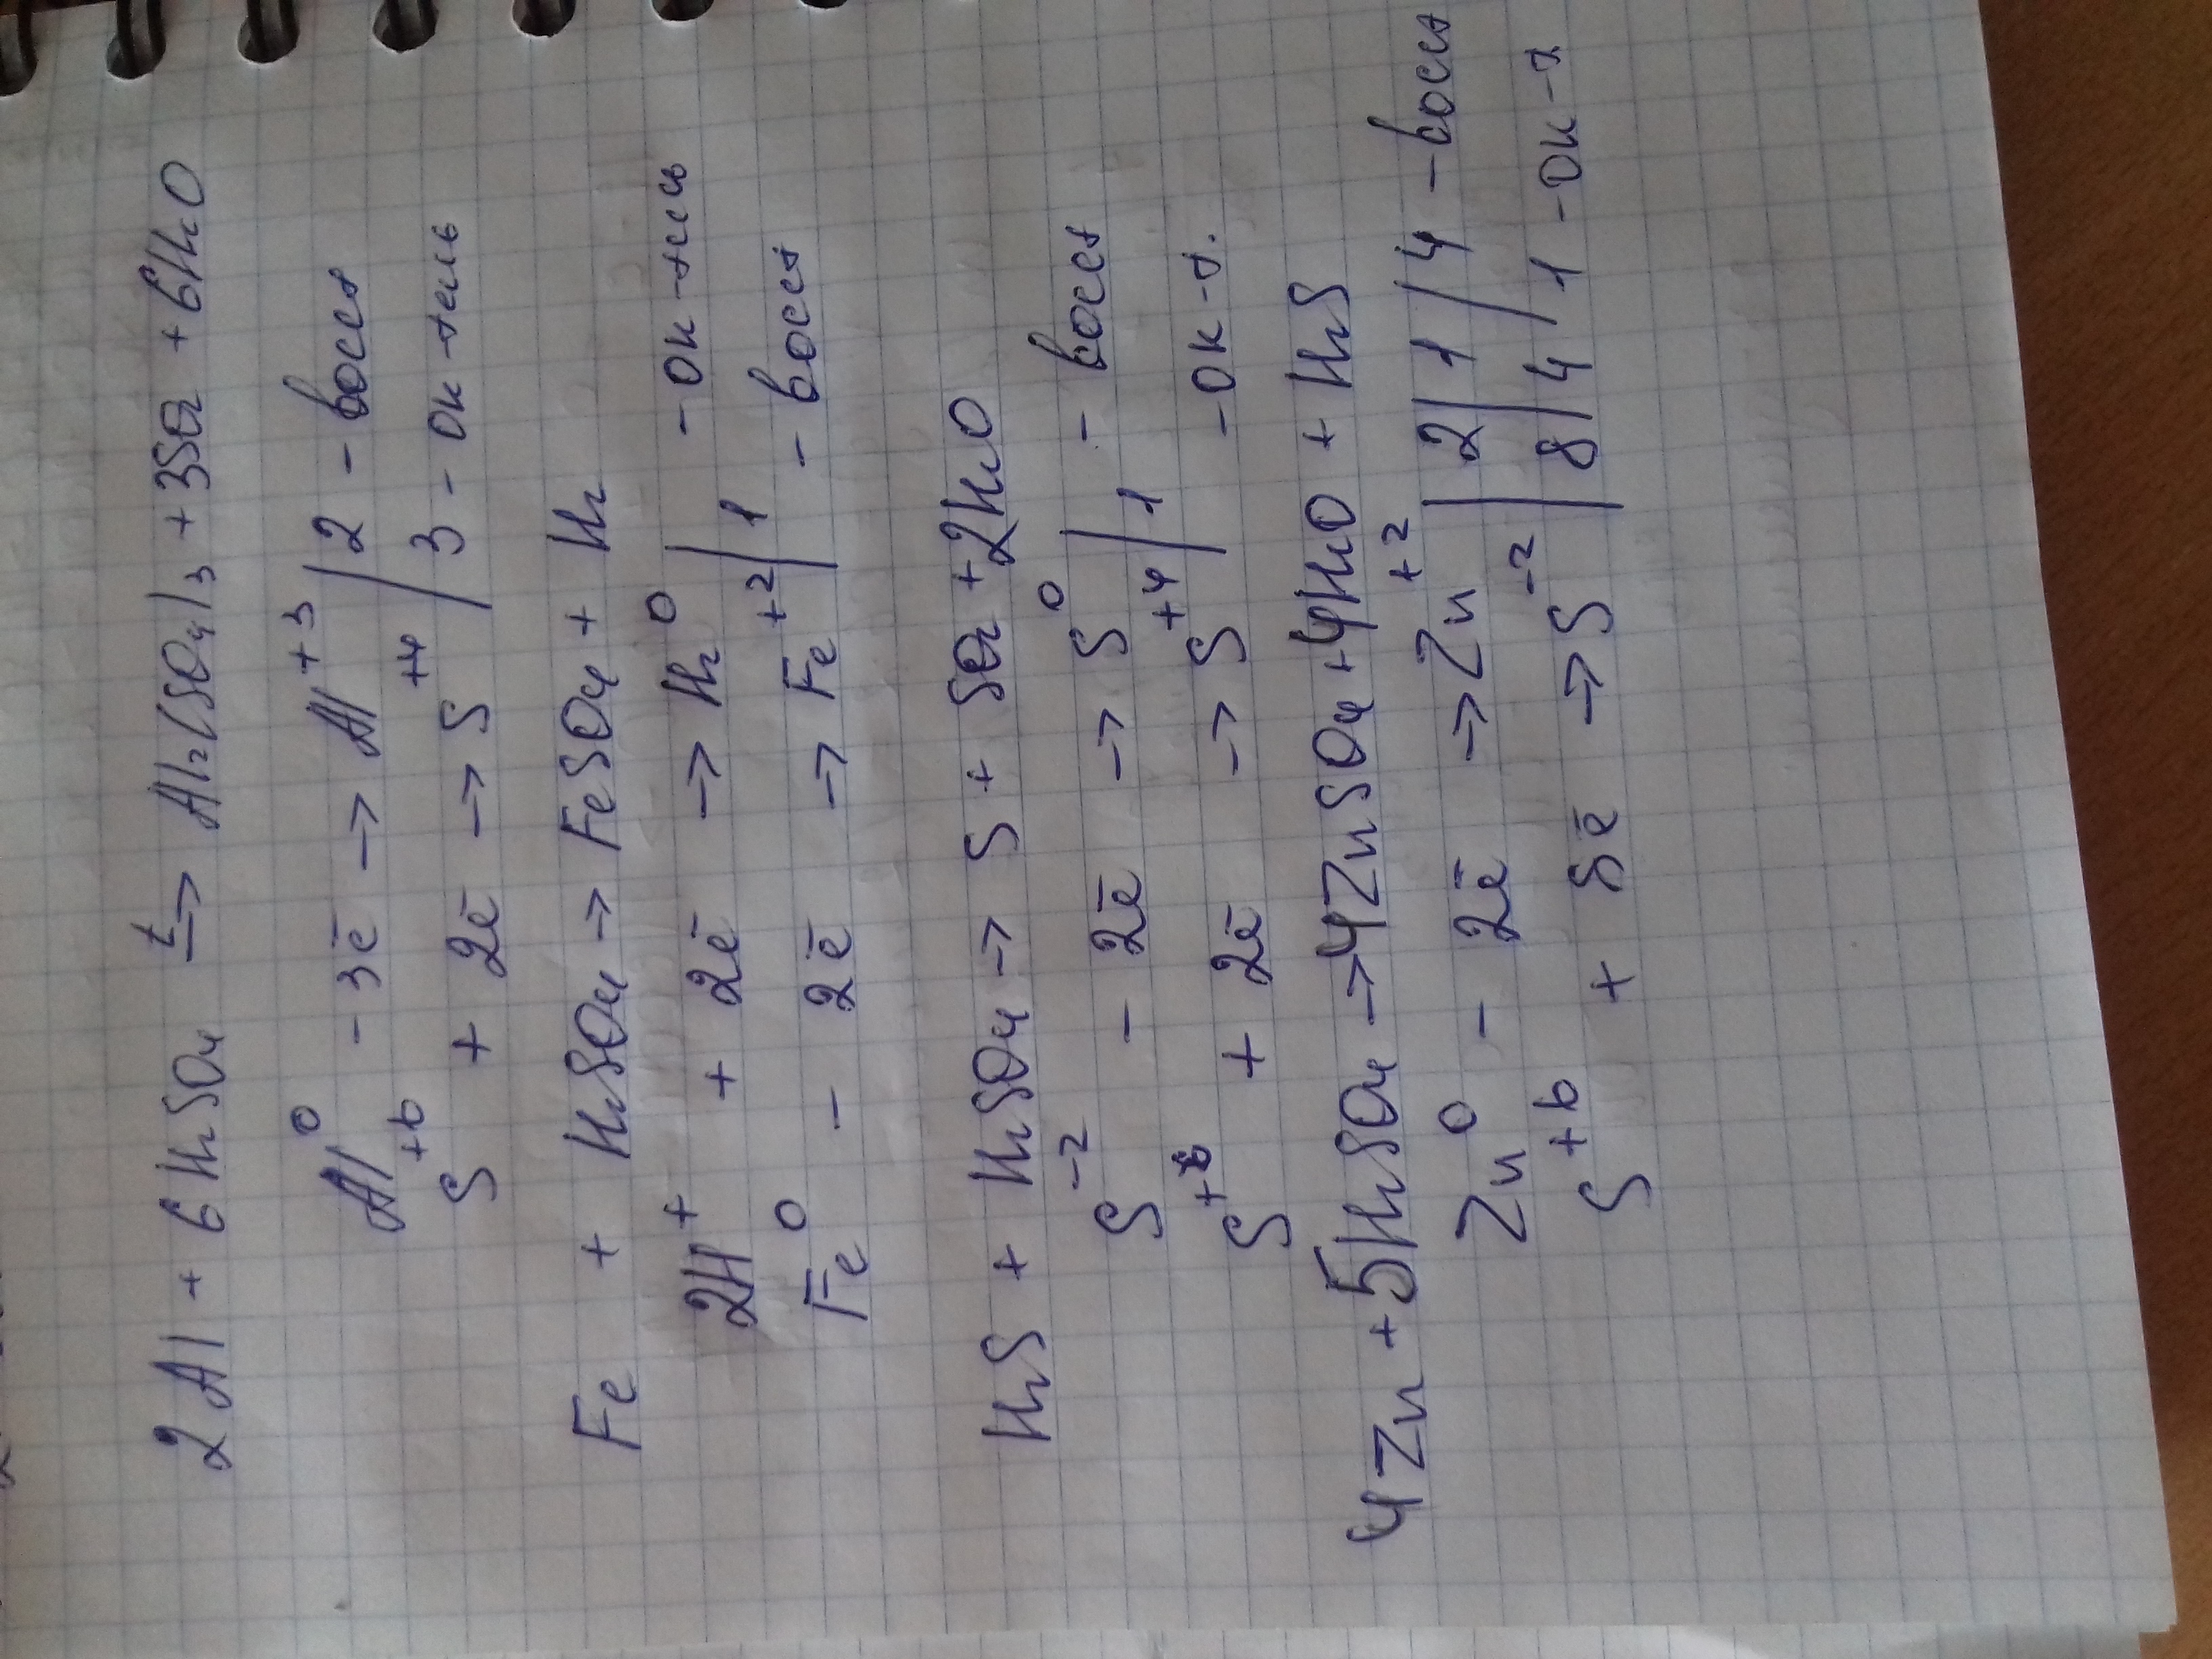 2Al + 6H₂SO₄ t→ Al₂(SO₄)₃ + 3SO₂ + 6H₂O
Al⁰ - 3ē → Al⁺³ | 2 - восст
S⁺⁶ + 2ē → S⁺⁴ | 3 - ок-тель
Fe + H₂SO₄ → FeSO₄ + H₂
2H⁺ + 2ē → H₂⁰ | - ок-тель
Fe⁰ - 2ē → Fe⁺² | 1 - восст
H₂S + H₂SO₄ → S + SO₂ + 2H₂O
S⁻² - 2ē → S⁰ | - восст
S⁺⁶ + 2ē → S⁺⁴ | 1 - ок-т.
4Zn + 5H₂SO₄ → 4ZnSO₄ + 4H₂O + H₂S
Zn⁰ - 2ē → Zn⁺² | 2 | 1 | 4 - восст
S⁺⁶ + 8ē → S⁻² | 8 | 4 | 1 - ок-т